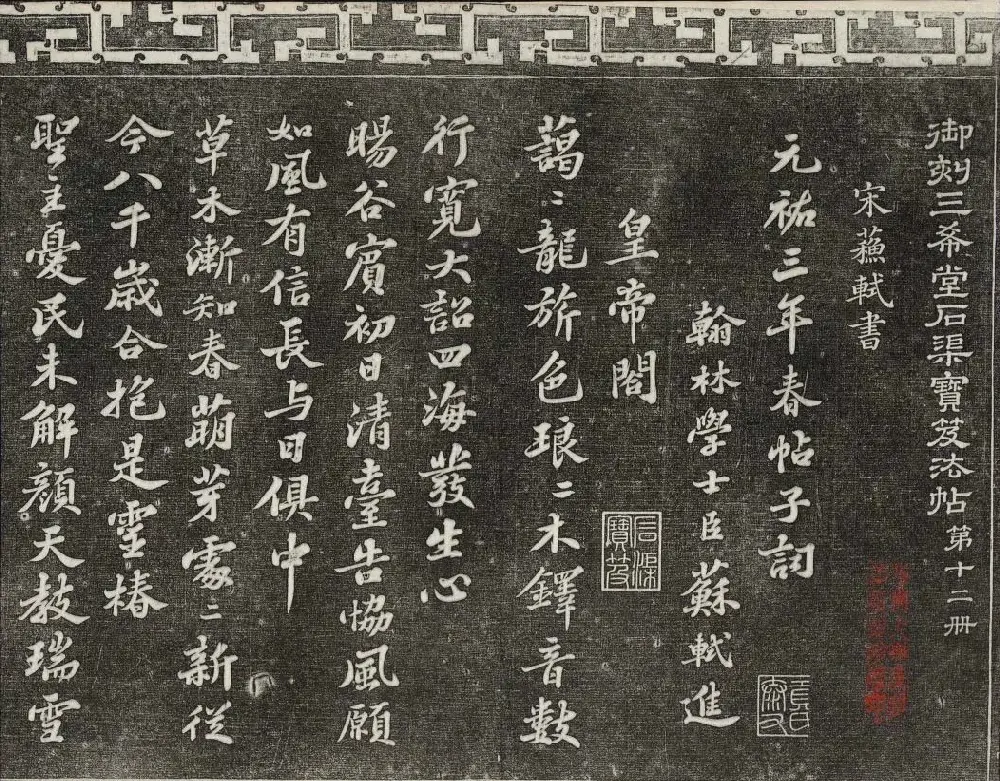 御刻三希堂石渠寶笈法帖第十二册
宋蘓軾書
元祐三年春帖子詞
翰林學士臣蘇軾進
皇帝閤
石渠寶笈
藹〻龍旂色琅〻木鐸音數
行寬大詔四海發生心
暘谷賓初日清臺告協風願
如風有信長与日俱中
草木漸知春萌芽處〻新從
今八千歲合抱是靈椿
聖主憂民未解顏天教瑞雪